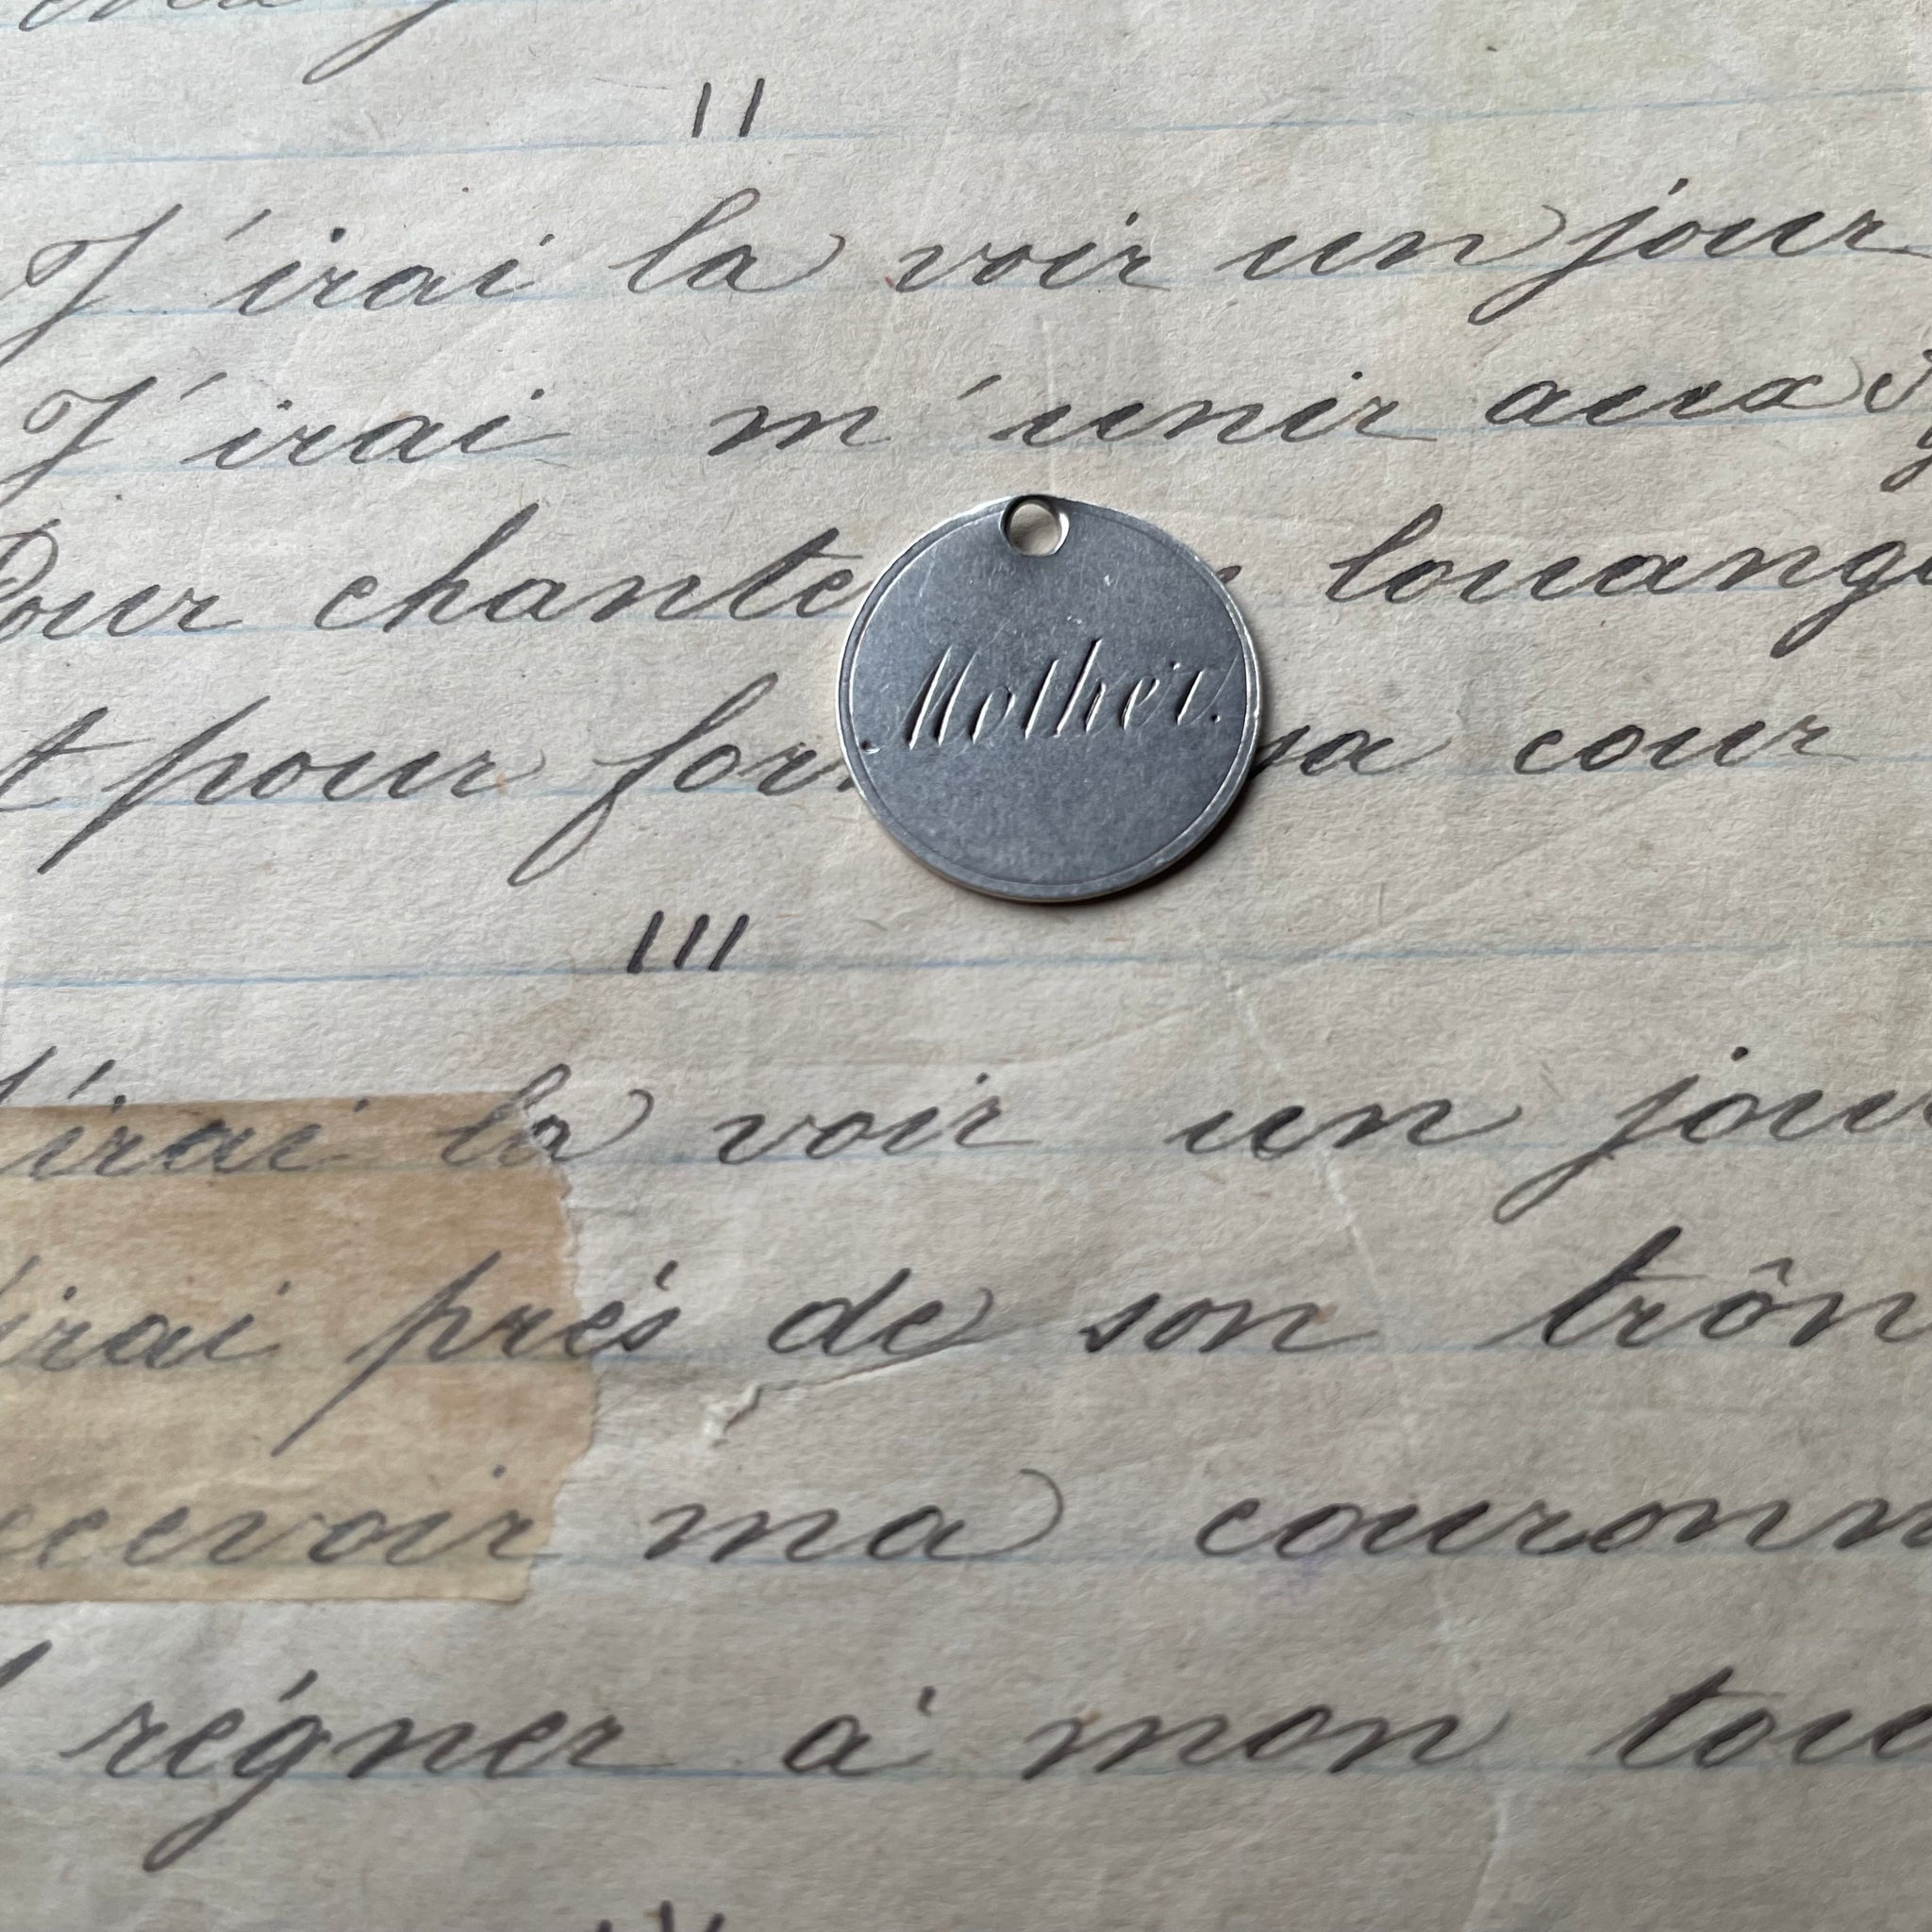 II
J'irai la voir un jour
J'irai m'unir aux
Pour chante louang
t pour for sa cour
Mother.
III
J'irai la voir un jour
J'irai prés de son trôn
ecevoir ma couronn
régner à mon tou
IV